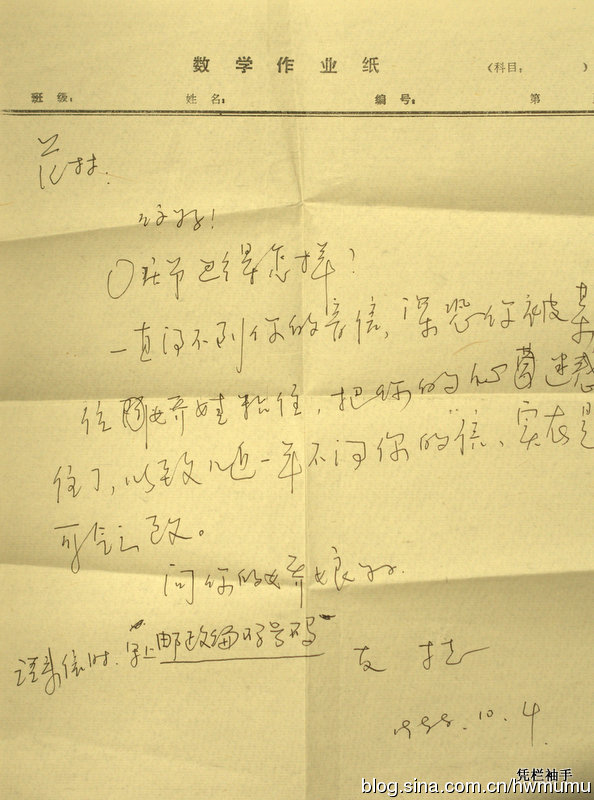 数学作业纸 (科目: )
班级: 姓名: 编号: 第
林:
你好!
节过得怎样?
一直得不到你的音信,深恐你被某
住 粘住,把你的心 迷惑
住了,以致几近一年不问你的信、实在是
可气之致。
问你的 娘好.
请来信时.写上"邮政编码号码"
友
1988.10.4.
凭栏袖手
blog.sina.com.cn/hwmumu